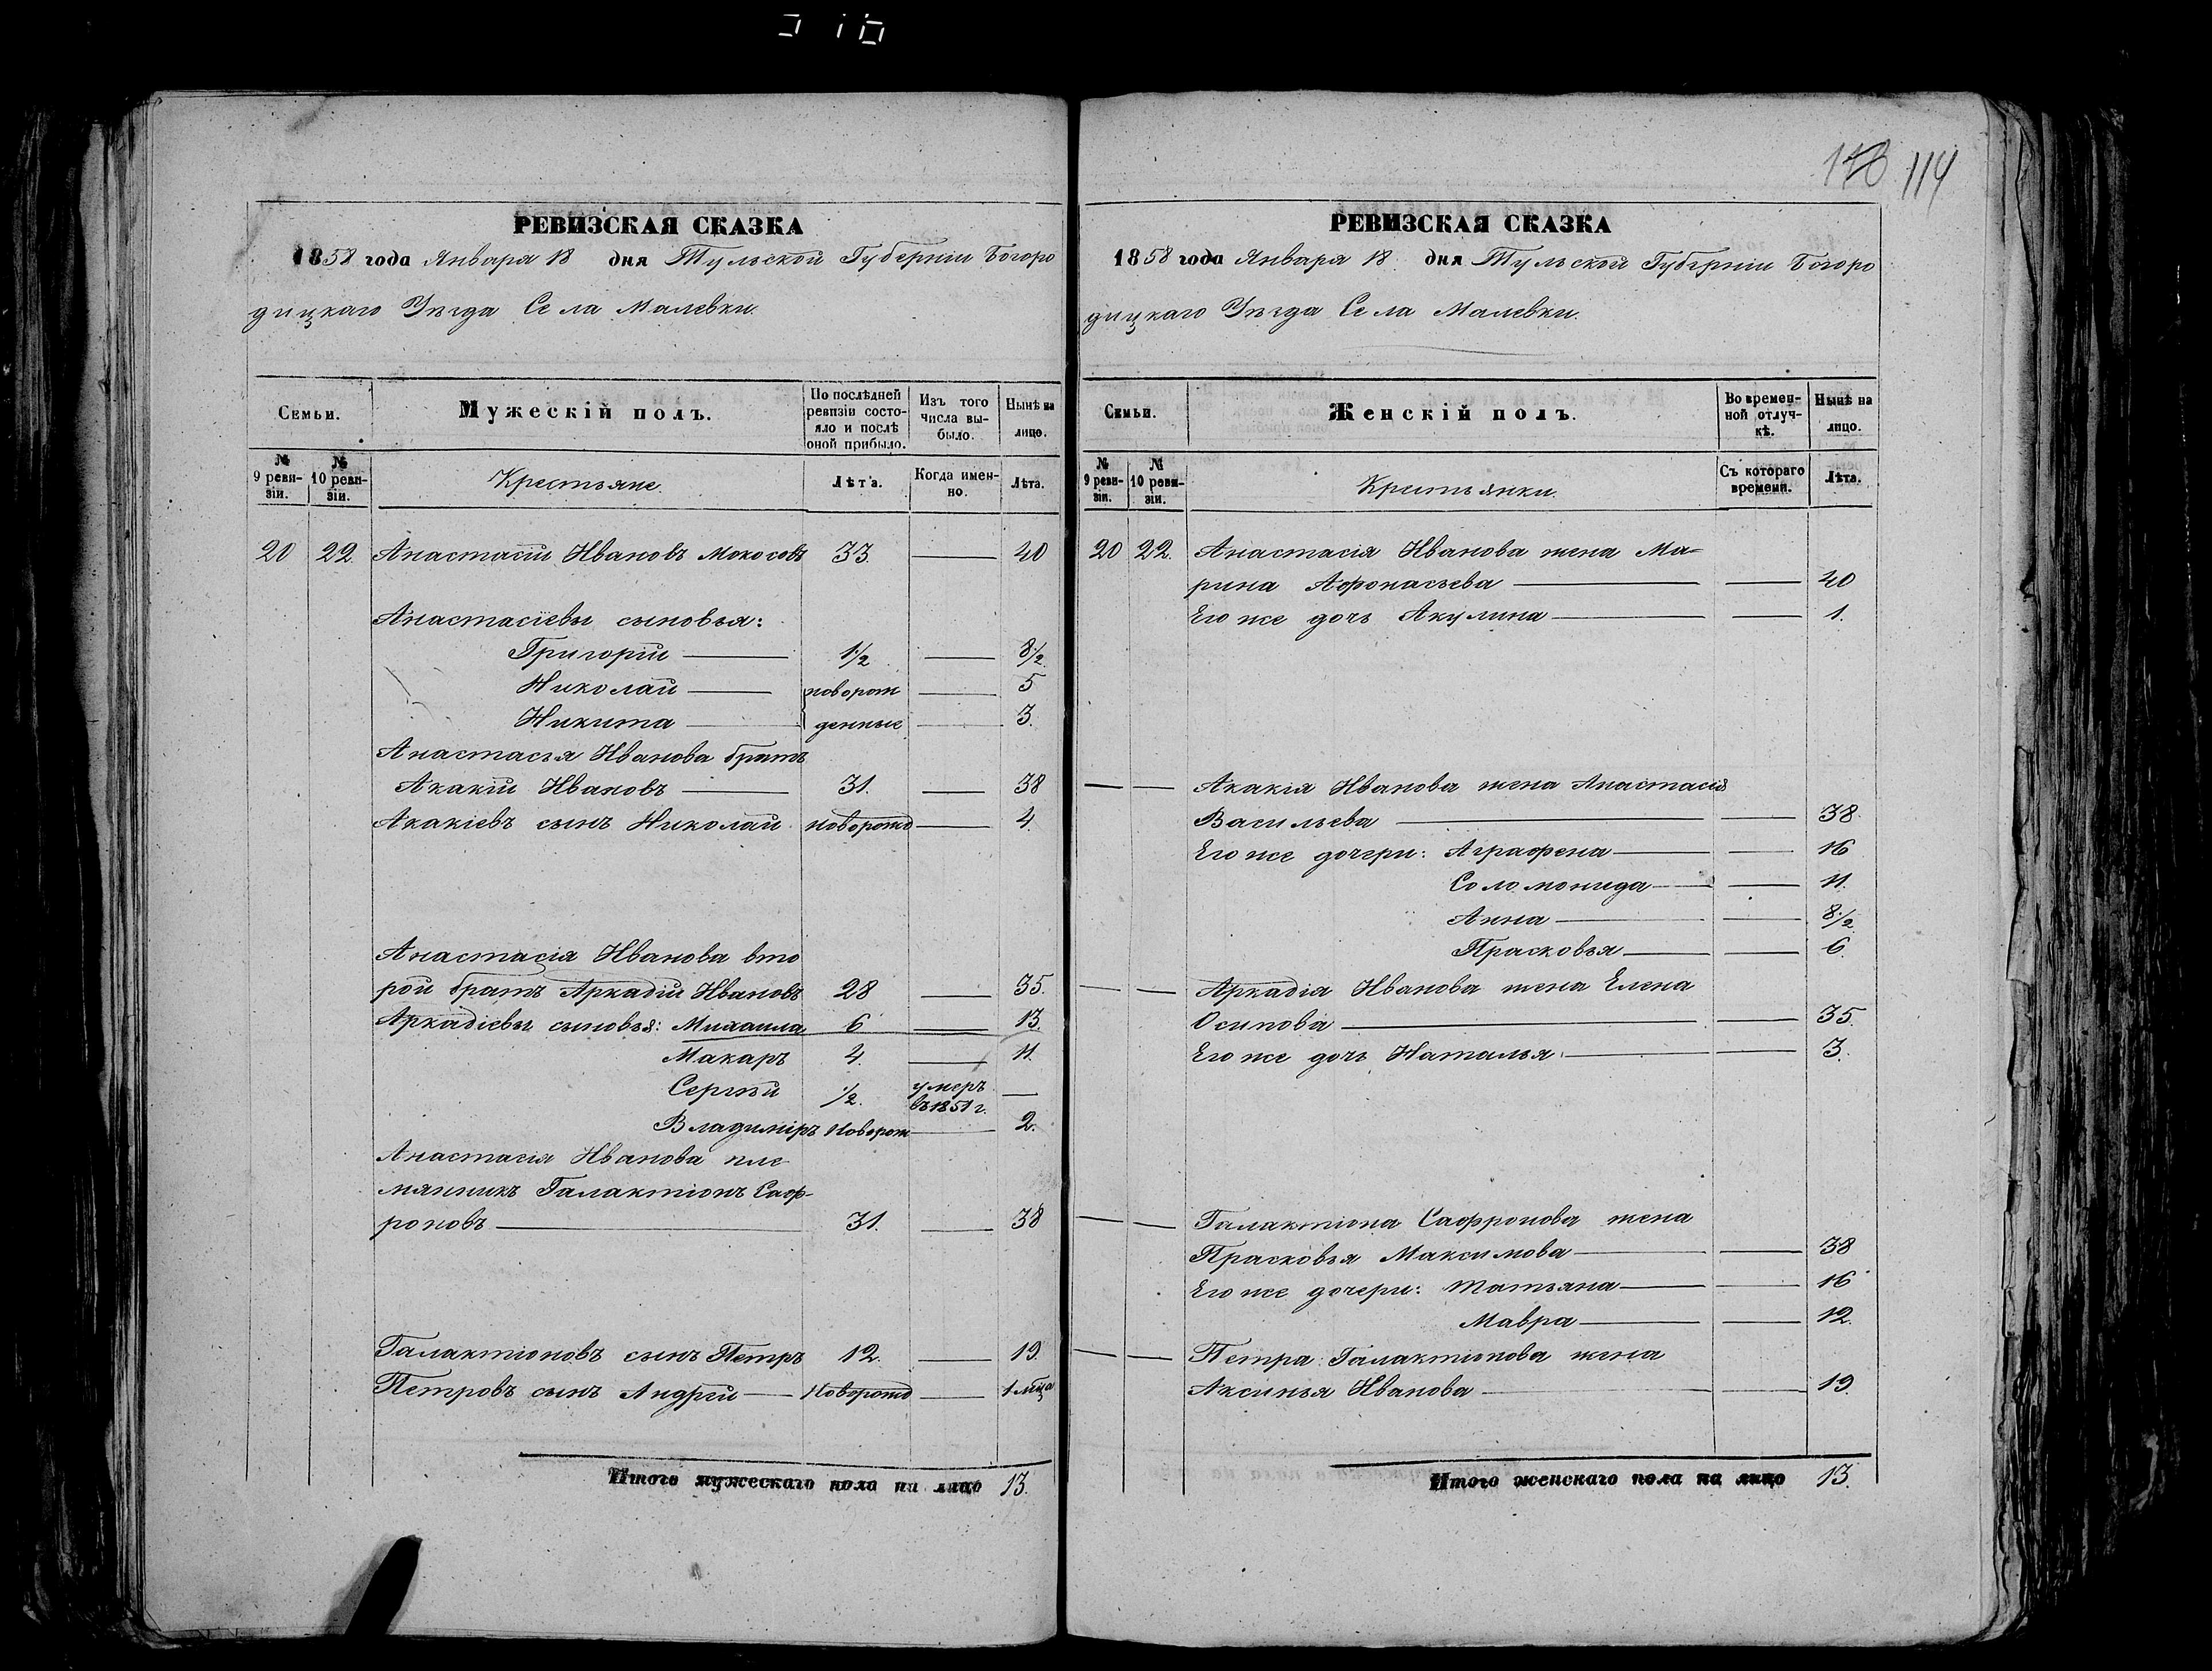 118 114
РЕВИЗСКАЯ СКАЗКА
1858 года Января 18 дня Тульской Губерніи Богоро
дицкаго Уѣзда Села Малевки.
Семьи.
Мужескій полъ.
По послѣдней ревизіи состояло и послѣ оной прибыло.
Изъ того числа выбыло.
Нынѣ на лицо.
№ 9 ревизіи.
№ 10 ревизіи.
Крестьяне.
Лѣта.
Когда именно.
Лѣта.
20 22. Анастасій Ивановъ Мокосовъ 33. — 40
Анастасіевы сыновья:
Григорій — 1½ — 8½
Николай — новорож — 5
Никита — денные — 3.
Анастасья Иванова братъ
Акакій Ивановъ — 31. — 38
Акакіевъ сынъ Николай новорожд — 4.
Анастасія Иванова вто
рой братъ Аркадій Ивановъ 28 — 35.
Аркадіевы сыновья: Михаила 6 — 13.
Макаръ 4. — 11.
Сергѣй ½. умеръ въ 1851 г. —
Владиміръ Новорож — 2.
Анастасія Иванова пле
мянникъ Галактіонъ Саф-
роновъ — 31. — 38
Галактіоновъ сынъ Петръ 12. — 19.
Петровъ сынъ Андрей — Новорожд — 1 мца
Итого мужескаго пола на лицо 13.
РЕВИЗСКАЯ СКАЗКА
1858 года Января 18 дня Тульской Губерніи Богоро
дицкаго Уѣзда Села Малевки.
Семьи.
Женскій полъ.
Во временной отлучкѣ.
Нынѣ на лицо.
№ 9 ревизіи.
№ 10 ревизіи.
Крестьянки.
Съ котораго времени.
Лѣта.
20 22. Анастасія Иванова жена Ма-
рина Афонасьева — — 40
Его же дочь Акулина — — 1.
— — Акакія Иванова жена Анастасія
Васильева — — 38.
Его же дочери: Аграфена — — 16
Соломонида — — 11.
Анна — — 8½
Прасковья — — 6.
— — Аркадія Иванова жена Елена
Осипова — — 35.
Его же дочь Наталья — — 3.
— — Галактіона Сафронова жена
Прасковья Максимова — — 38
Его же дочери: Татьяна — — 16
Мавра — — 12.
— — Петра Галактіонова жена
Аксинья Иванова — — 19.
Итого женскаго пола на лицо 13.